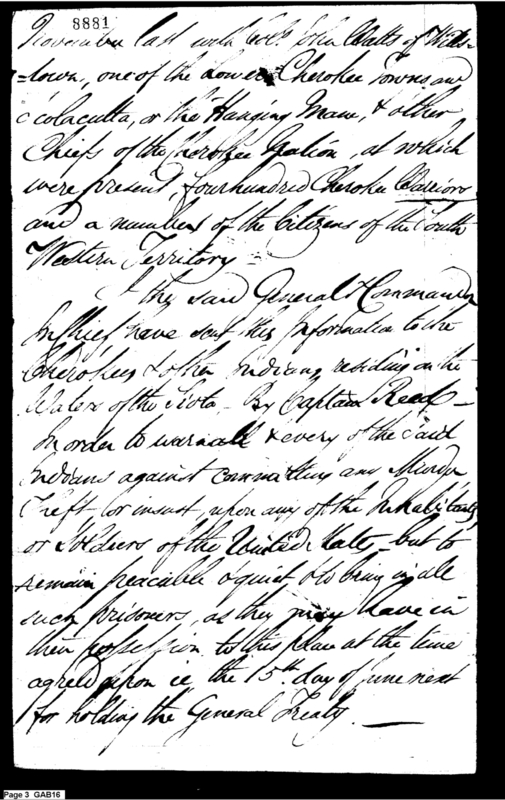 8881
November last with Col.º John Watts of Wills-
=town, one of the Lower Cherokee Towns and
Scolacutta, or the Hanging Maw, & other
Chiefs of the Cherokee Nation, at which
were present, four hundred Cherokee Warriors
and a number of the Citizens of the South
Western Territory -
I the said General & Commander
In Chief have sent this Information to the
Cherokees & other Indians residing on the
Waters of the Siota - By Captain Reed -
In order to warn all & every of the said
Indians against committing any Murder
Theft, or insult, upon any of the Inhabitants
or Soldiers of the United States - but to
remain peacable & quiet & to bring in all
such prisoners, as they may have in
their possession to this place at the time
agreed upon ie the 15th day of June next
for holding the General Treaty. —
Page 3 GAB16